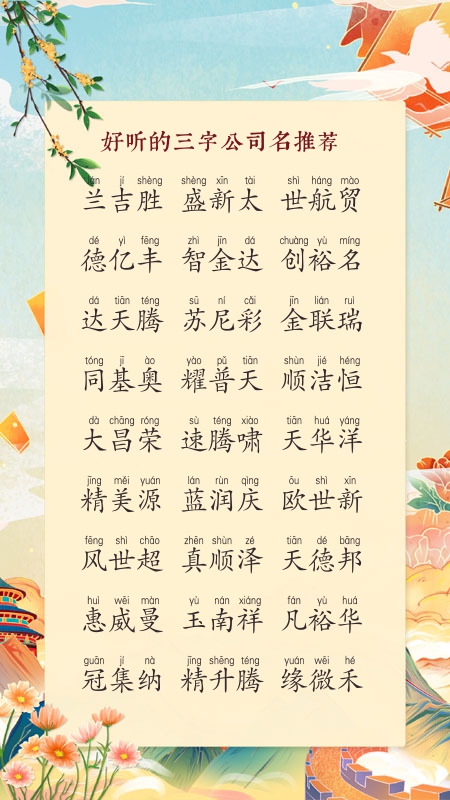 好听的三字公司名推荐
lán jí shèng shèng xīn tài shì háng mào
兰吉胜 盛新太 世航贸
dé yì fēng zhì jīn dá chuàng yù míng
德亿丰 智金达 创裕名
dá tiān téng sū ní cǎi jīn lián ruì
达天腾 苏尼彩 金联瑞
tóng jī ào yào pǔ tiān shùn jié héng
同基奥 耀普天 顺洁恒
dà chāng róng sù téng xiào tiān huá yáng
大昌荣 速腾啸 天华洋
jīng měi yuán lán rùn qìng ōu shì xīn
精美源 蓝润庆 欧世新
fēng shì chāo zhēn shùn zé tiān dé bāng
风世超 真顺泽 天德邦
huì wēi màn yù nán xiáng fán yù huá
惠威曼 玉南祥 凡裕华
guān jí nà jīng shēng téng yuán wēi hé
冠集纳 精升腾 缘微禾